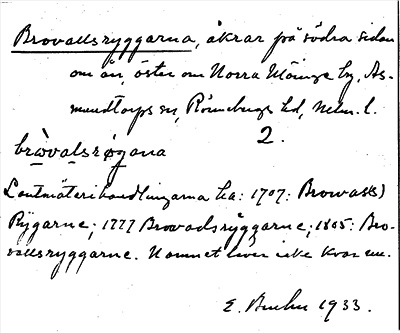 Brovallsryggarna, åkrar på södra sidan
om ån, öster om Norra Möinge by, As-
mundtorps sn, Rönnebergs hd, Malm. l.
2.
bròvalsrøgana
Lantmäterihandlingarna ha: 1707: Browalls
Rÿgarne; 1777 Browadsrÿggarne; 1805: Bro-
vallsryggarne. Namnet lever icke kvar nu.
E. Bruhn 1933.